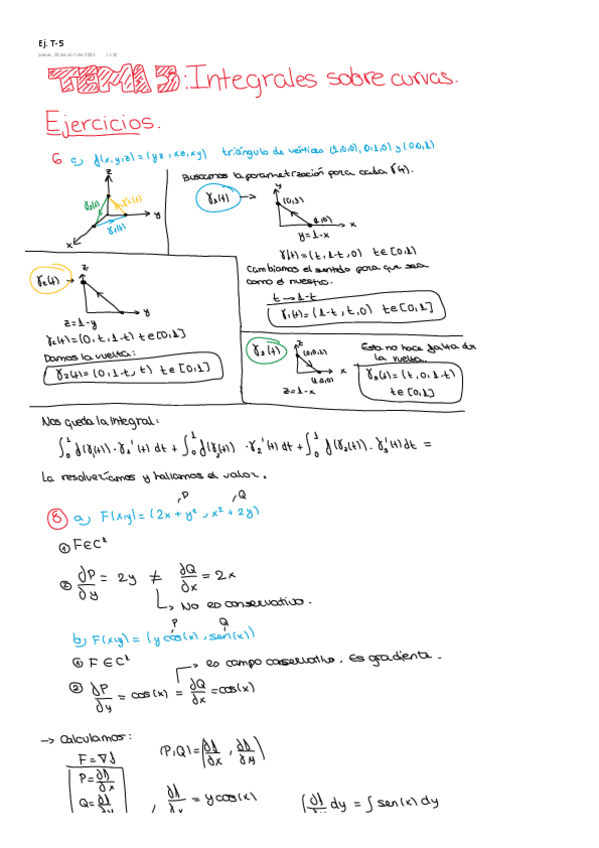 Ej. T-5
TEMA 3: Integrales sobre curvas.
Ejercicios.
6 c) f(x,y,z) = (yz, xz, xy) triángulo de vértices (1,0,0), (0,1,0) y (0,0,1)
Buscamos la parametrización para cada γ(t).
z
γ3(t)
γ2(t)
y
x
γ1(t)
γ1(t)
y
(0,1)
(1,0)
x
y=1-x
γ(t) = (t, 1-t, 0) t∈[0,1]
Cambiamos el sentido para que sea
como el nuestro.
t → 1-t
γ1(t) = (1-t, t, 0) t∈[0,1]
γ2(t)
z
y
z=1-y
γ2(t) = (0, t, 1-t) t∈[0,1]
Damos la vuelta:
γ2(t) = (0, 1-t, t) t∈[0,1]
γ3(t)
z
(0,0,1)
(1,0,0)
x
z=1-x
Esta no hace falta dar
la vuelta.
γ3(t) = (t, 0, 1-t)
t∈[0,1]
Nos queda la integral:
∫₀¹ f(γ(t)) · γ1'(t) dt + ∫₀¹ f(γ2(t)) · γ2'(t) dt + ∫₀¹ f(γ3(t)) · γ3'(t) dt =
La resolveríamos y hallamos el valor.
P Q
8 a) F(x,y) = (2x + y², x² + 2y)
① F∈C¹
② ∂P/∂y = 2y ≠ ∂Q/∂x = 2x
↳ No es conservativo.
P Q
b) F(x,y) = (y cos(x), sen(x))
① F∈C¹
→ es campo conservativo. Es gradiente.
② ∂P/∂y = cos(x) = ∂Q/∂x = cos(x)
→ Calculamos:
F = ∇f
(P,Q) = (∂f/∂x, ∂f/∂y)
P = ∂f/∂x
Q = ∂f
∂f/∂x = y cos(x)
∫ ∂f dy = ∫ sen(x) dy